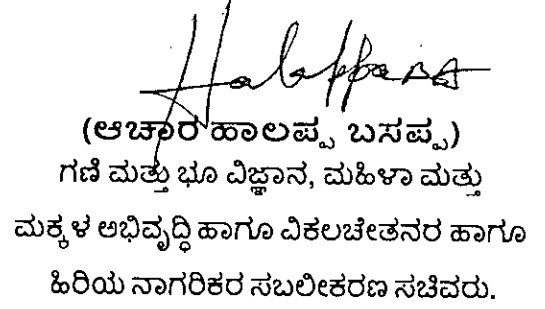 Halappa
(ಆಚಾರ ಹಾಲಪ್ಪ ಬಸಪ್ಪ)
ಗಣಿ ಮತ್ತು ಭೂ ವಿಜ್ಞಾನ, ಮಹಿಳಾ ಮತ್ತು
ಮಕ್ಕಳ ಅಭಿವೃದ್ಧಿ ಹಾಗೂ ವಿಕಲಚೇತನರ ಹಾಗೂ
ಹಿರಿಯ ನಾಗರಿಕರ ಸಬಲೀಕರಣ ಸಚಿವರು.